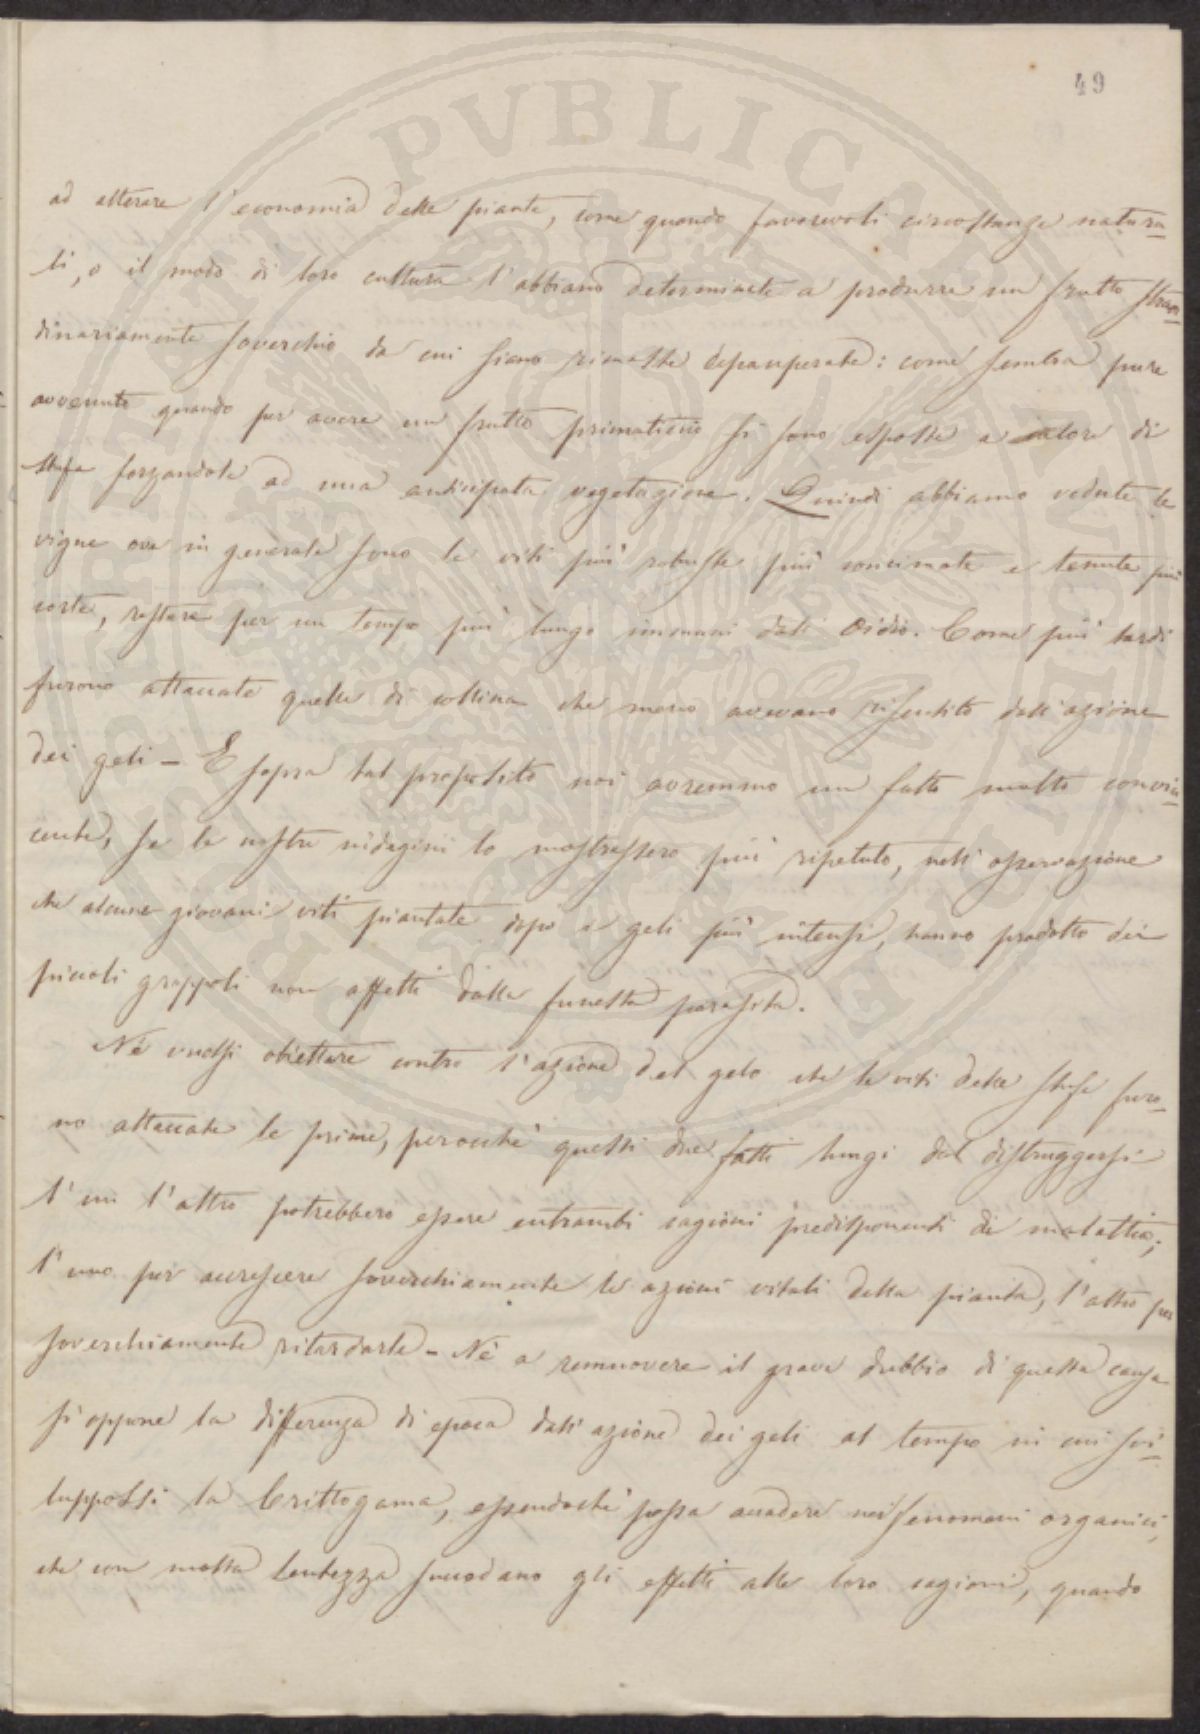 49
ad alterare l'economia delle piante, come quando favorevoli circostanze natura-
li, o il modo di loro cultura l'abbiano determinate a produrre un frutto straor-
dinariamente soverchio da cui siano rimaste depauperate: come sembra pure
avvenuto quando per avere un frutto primaticcio si sono esposte a calore di
stufe forzandole ad una anticipata vegetazione. Quindi abbiamo vedute le
vigne ove in generale sono le viti più robuste più concimate e tenute più
corte, restare per un tempo più lungo immuni dall'Oidio. Come più tardi
furono attaccate quelle di collina che meno avevano risentito dell'azione
dei geli - E sopra tal proposito noi avremmo un fatto molto convin-
cente, se le nostre indagini lo mostrassero più ripetuto, nell'osservazione
che alcune giovani viti piantate dopo i geli più intensi, hanno prodotto dei
piccoli grappoli non affetti dalla funesta parasita.
Nè vuolsi obiettare contro l'azione del gelo che le viti delle stufe furo-
no attaccate le prime, perocchè questi due fatti lungi dal distruggersi
l'un l'altro potrebbero essere entrambi cagioni predisponenti di malattia;
l'uno per accrescere soverchiamente le azioni vitali della pianta, l'altro per
soverchiamente ritardarle - Nè a rimuovere il grave dubbio di questa causa
si oppone la differenza di epoca dall'azione dei geli al tempo in cui svi-
luppossi la Crittogama, essendochè possa accadere nei fenomeni organici,
che con molta lentezza succedano gli effetti alle loro cagioni, quando
PVBLICAE